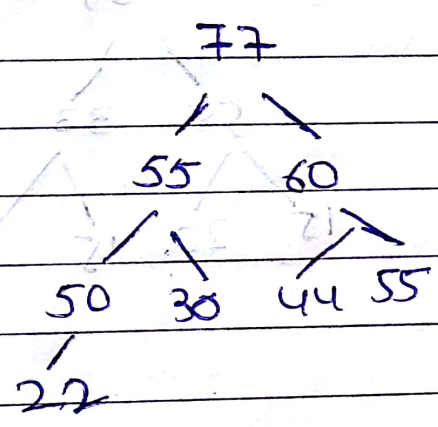 77
55 60
50 30 44 55
22